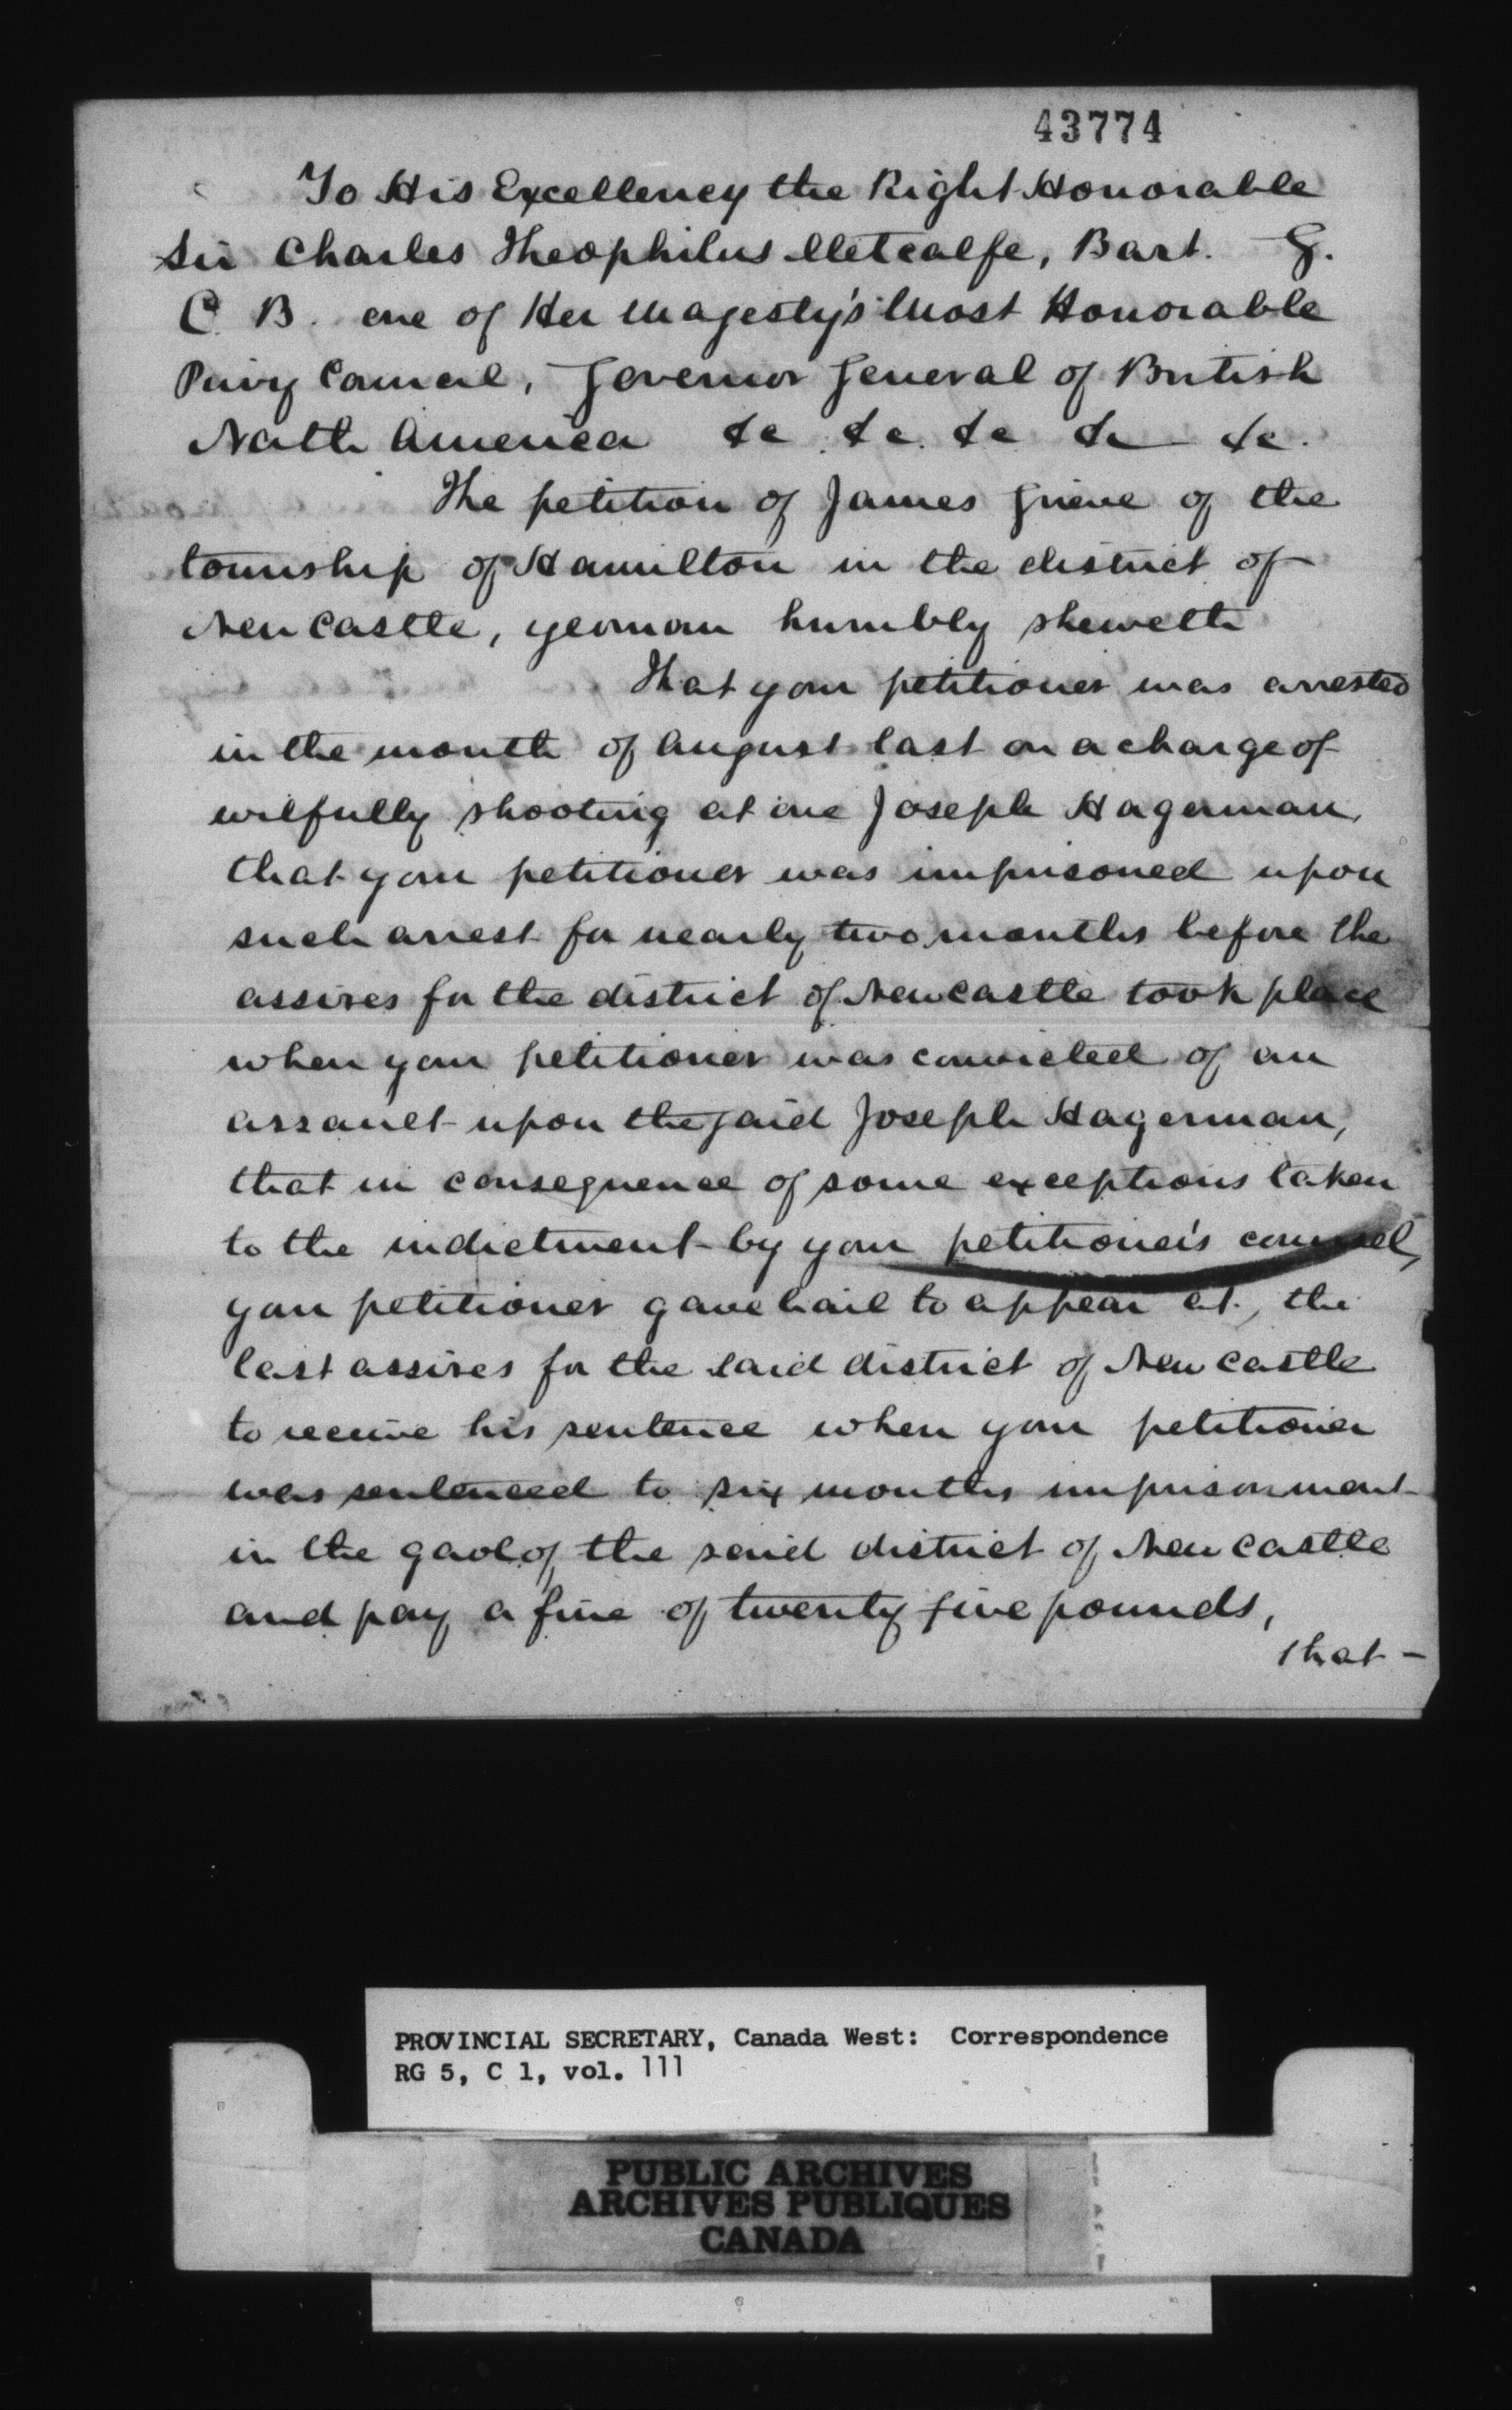 43774
To His Excellency the Right Honorable
Sir Charles Theophilus Metcalfe, Bart. G.
C. B. one of Her Magesty's Most Honorable
Privy Council, Governor General of British
North America &c &c. &c &c &c.
The petition of James Grieve of the
township of Hamilton in the district of
New castle, yeoman humbly sheweth
That your petitioner was arrested
in the month of August last on a charge of
wilfully shooting at one Joseph Hagerman,
that your petitioner was imprisoned upon
such arrest for nearly two months before the
assizes for the district of Newcastle took place
when your petitioner was convicted of an
assault upon the said Joseph Hagerman,
that in consequence of some exceptions taken
to the indictment by your petitioner's counsel,
your petitioner gave bail to appear at, the
last assizes for the said district of New castle
to receive his sentence when your petitioner
was sentenced to six months imprisonment
in the gaol of the said district of New castle
and pay a fine of twenty five pounds,
that -
PROVINCIAL SECRETARY, Canada West: Correspondence
RG 5, C 1, vol. 111
PUBLIC ARCHIVES
ARCHIVES PUBLIQUES
CANADA